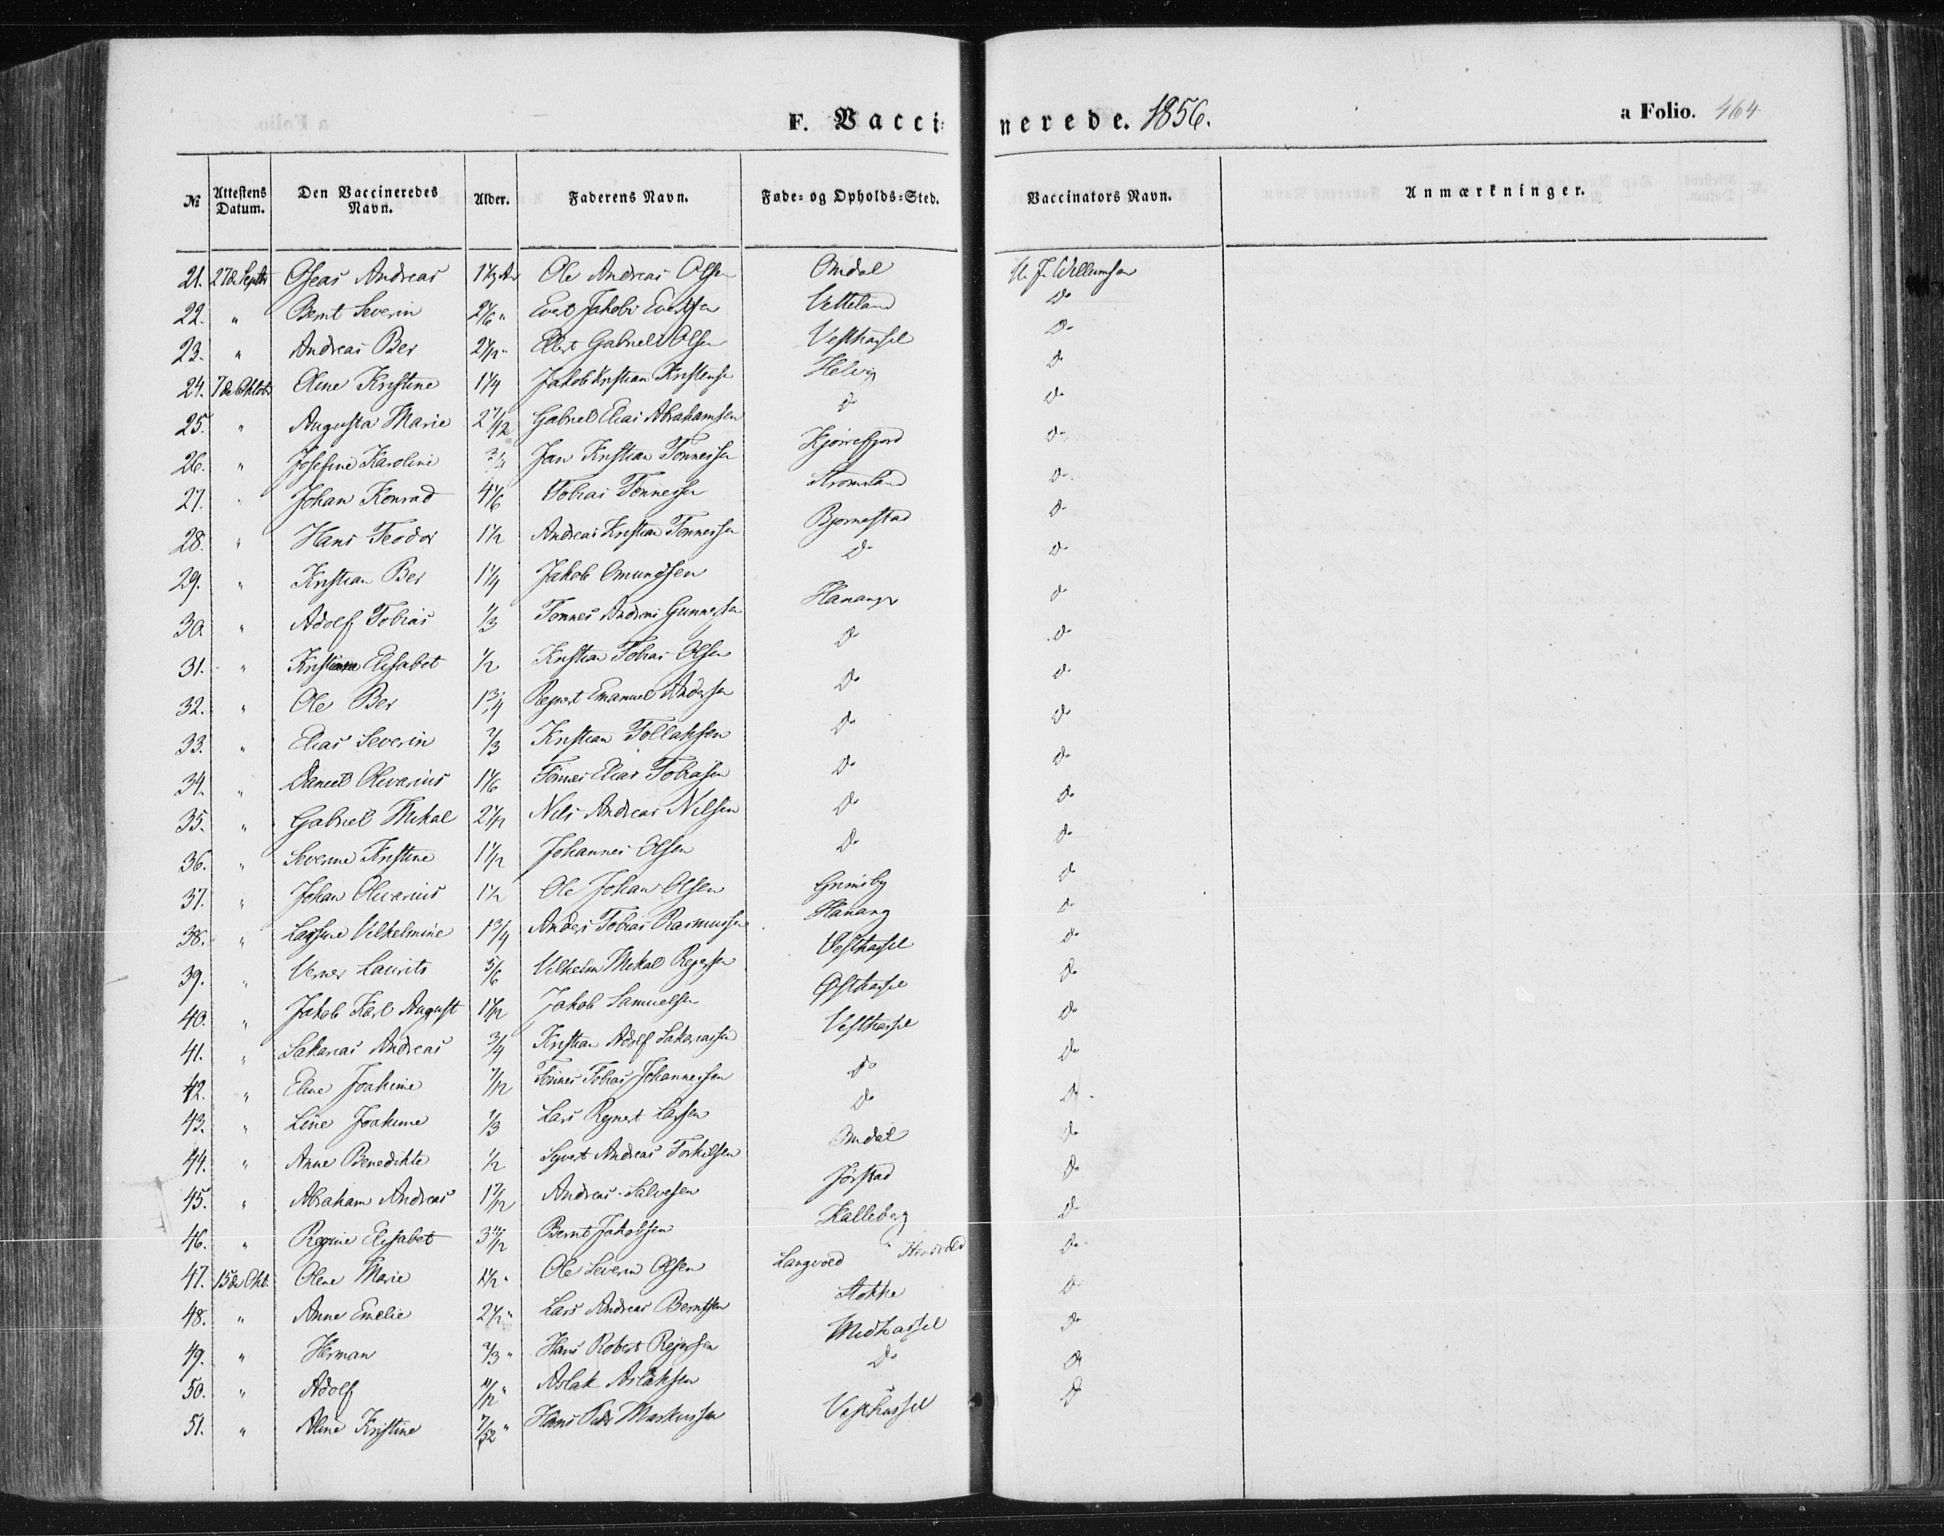 F. Vaccinerede. 1856. a Folio. 464
№ Attestens Datum. Den Vaccineredes Navn. Alder. Faderens Navn. Føde- og Opholds-Sted. Vaccinators Navn. Anmærkninger.
21. 27de Septbr Oseas Andreas 1 1/3 Aar Ole Andreas Olsen Omdal Willumsen
22. " Bernt Severin 2 1/6 " Evert Jakob Evertsen Vetteland Do
23. " Andreas Ber 2 1/2 " Elert Gabriel Olsen Vesthassel Do
24. 7de Oktobr Oline Kristine 1 1/4 Jakob Kristian Kristensen Helvig Do
25. " Augusta Marie 2 7/12 Gabriel Elias Abrahamsen Do Do
26. " Josefine Karoline 3/4 Jan Kristian Tønnessen Kjørrefjord Do
27. " Johan Konrad 4 1/6 Tobias Tønnessen Strømsland Do
28. " Hans Teodor 1 1/2 Andreas Kristian Tønnessen Bjørnestad Do
29. " Kristian Ber 1 1/4 Jakob Omundsen Do Do
30. " Adolf Tobias 1/3 Tønnes Andreas Gunnersen Hananger Do
31. " Kristianna Elisabet 1/2 Kristian Tobias Olsen Do Do
32. " Ole Ber 1 3/4 Reinert Emanuel Andersen Do Do
33. " Elias Severin 2/3 Kristian Tollaksen Do Do
34. " Daniel Olivarius 1 1/6 Tønnes Elias Tobiasen Do Do
35. " Gabriel Mikal 2 1/2 Nils Andreas Nilsen Do Do
36. " Severine Kristine 1 1/2 Johannes Olsen Do Do
37. " Johan Olivarius 1 1/2 Ole Johan Olsen Grimsby Do
38. " Vilhelmine 1 3/4 Anders Tobias Rasmussen Hanang Do
39. " Verner Laurits 5/6 Vilhelm Mikal Rejersen Vesthassel Do
40. " Jakob Karl August 1 1/2 Jakob Samuelsen Østhassel Do
41. " Sakarias Andreas 3/4 Kristian Adolf Sakariassen Vesthassel Do
42. " Eline Joakime 7/12 Tønnes Tobias Johannessen Do Do
43. " Line Joakime 1/3 Lars Reinert Larsen Do Do
44. " Anne Benedikte 1/2 Sivert Andreas Torkilsen Omdal Do
45. " Abraham Andreas 1 7/12 Andreas Salvesen Jørstad Do
46. " Regine Elisabet 3 1/2 Bernt Jakobsen Kalleberg Do
47. 15de Okt. Oline Marie 1 1/2 " Ole Severin Olsen Langvold " Herisvold Do
48. " Anne Emelie 2 1/2 " Lars Andreas Berntsen Stokke Do
49. " Herman 2/3 " Hans Robert Rejersen Midhassel Do
50. " Adolf 11/12 " Aslak Aslaksen Do Do
51. " Aline Kristine 7/52 " Hans Peder Markussen Vesthassel Do